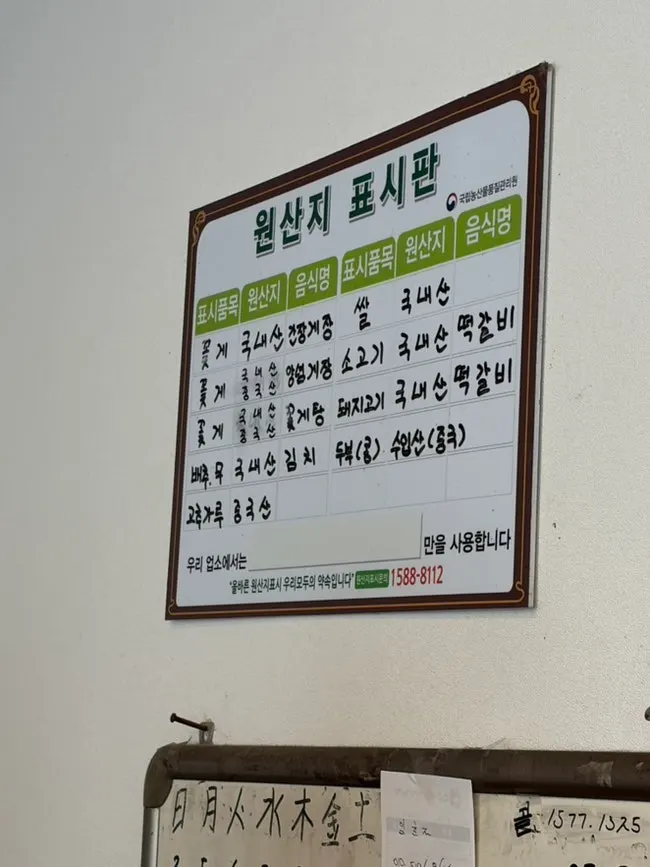 원산지 표시판
국립농산물품질관리원
표시품목 원산지 음식명 표시품목 원산지 음식명
꽃게 국내산 간장게장 쌀 국내산
꽃게 국내산 중국산 양념게장 소고기 국내산 떡갈비
꽃게 국내산 중국산 꽃게탕 돼지고기 국내산 떡갈비
배추,무 국내산 김치 두부(콩) 수입산(중국)
고춧가루 중국산
우리 업소에서는 만을 사용합니다
"올바른 원산지표시 우리모두의 약속입니다" 원산지표시문의 1588-8112
日 月 火 水 木 金 土
콜 1577.1325